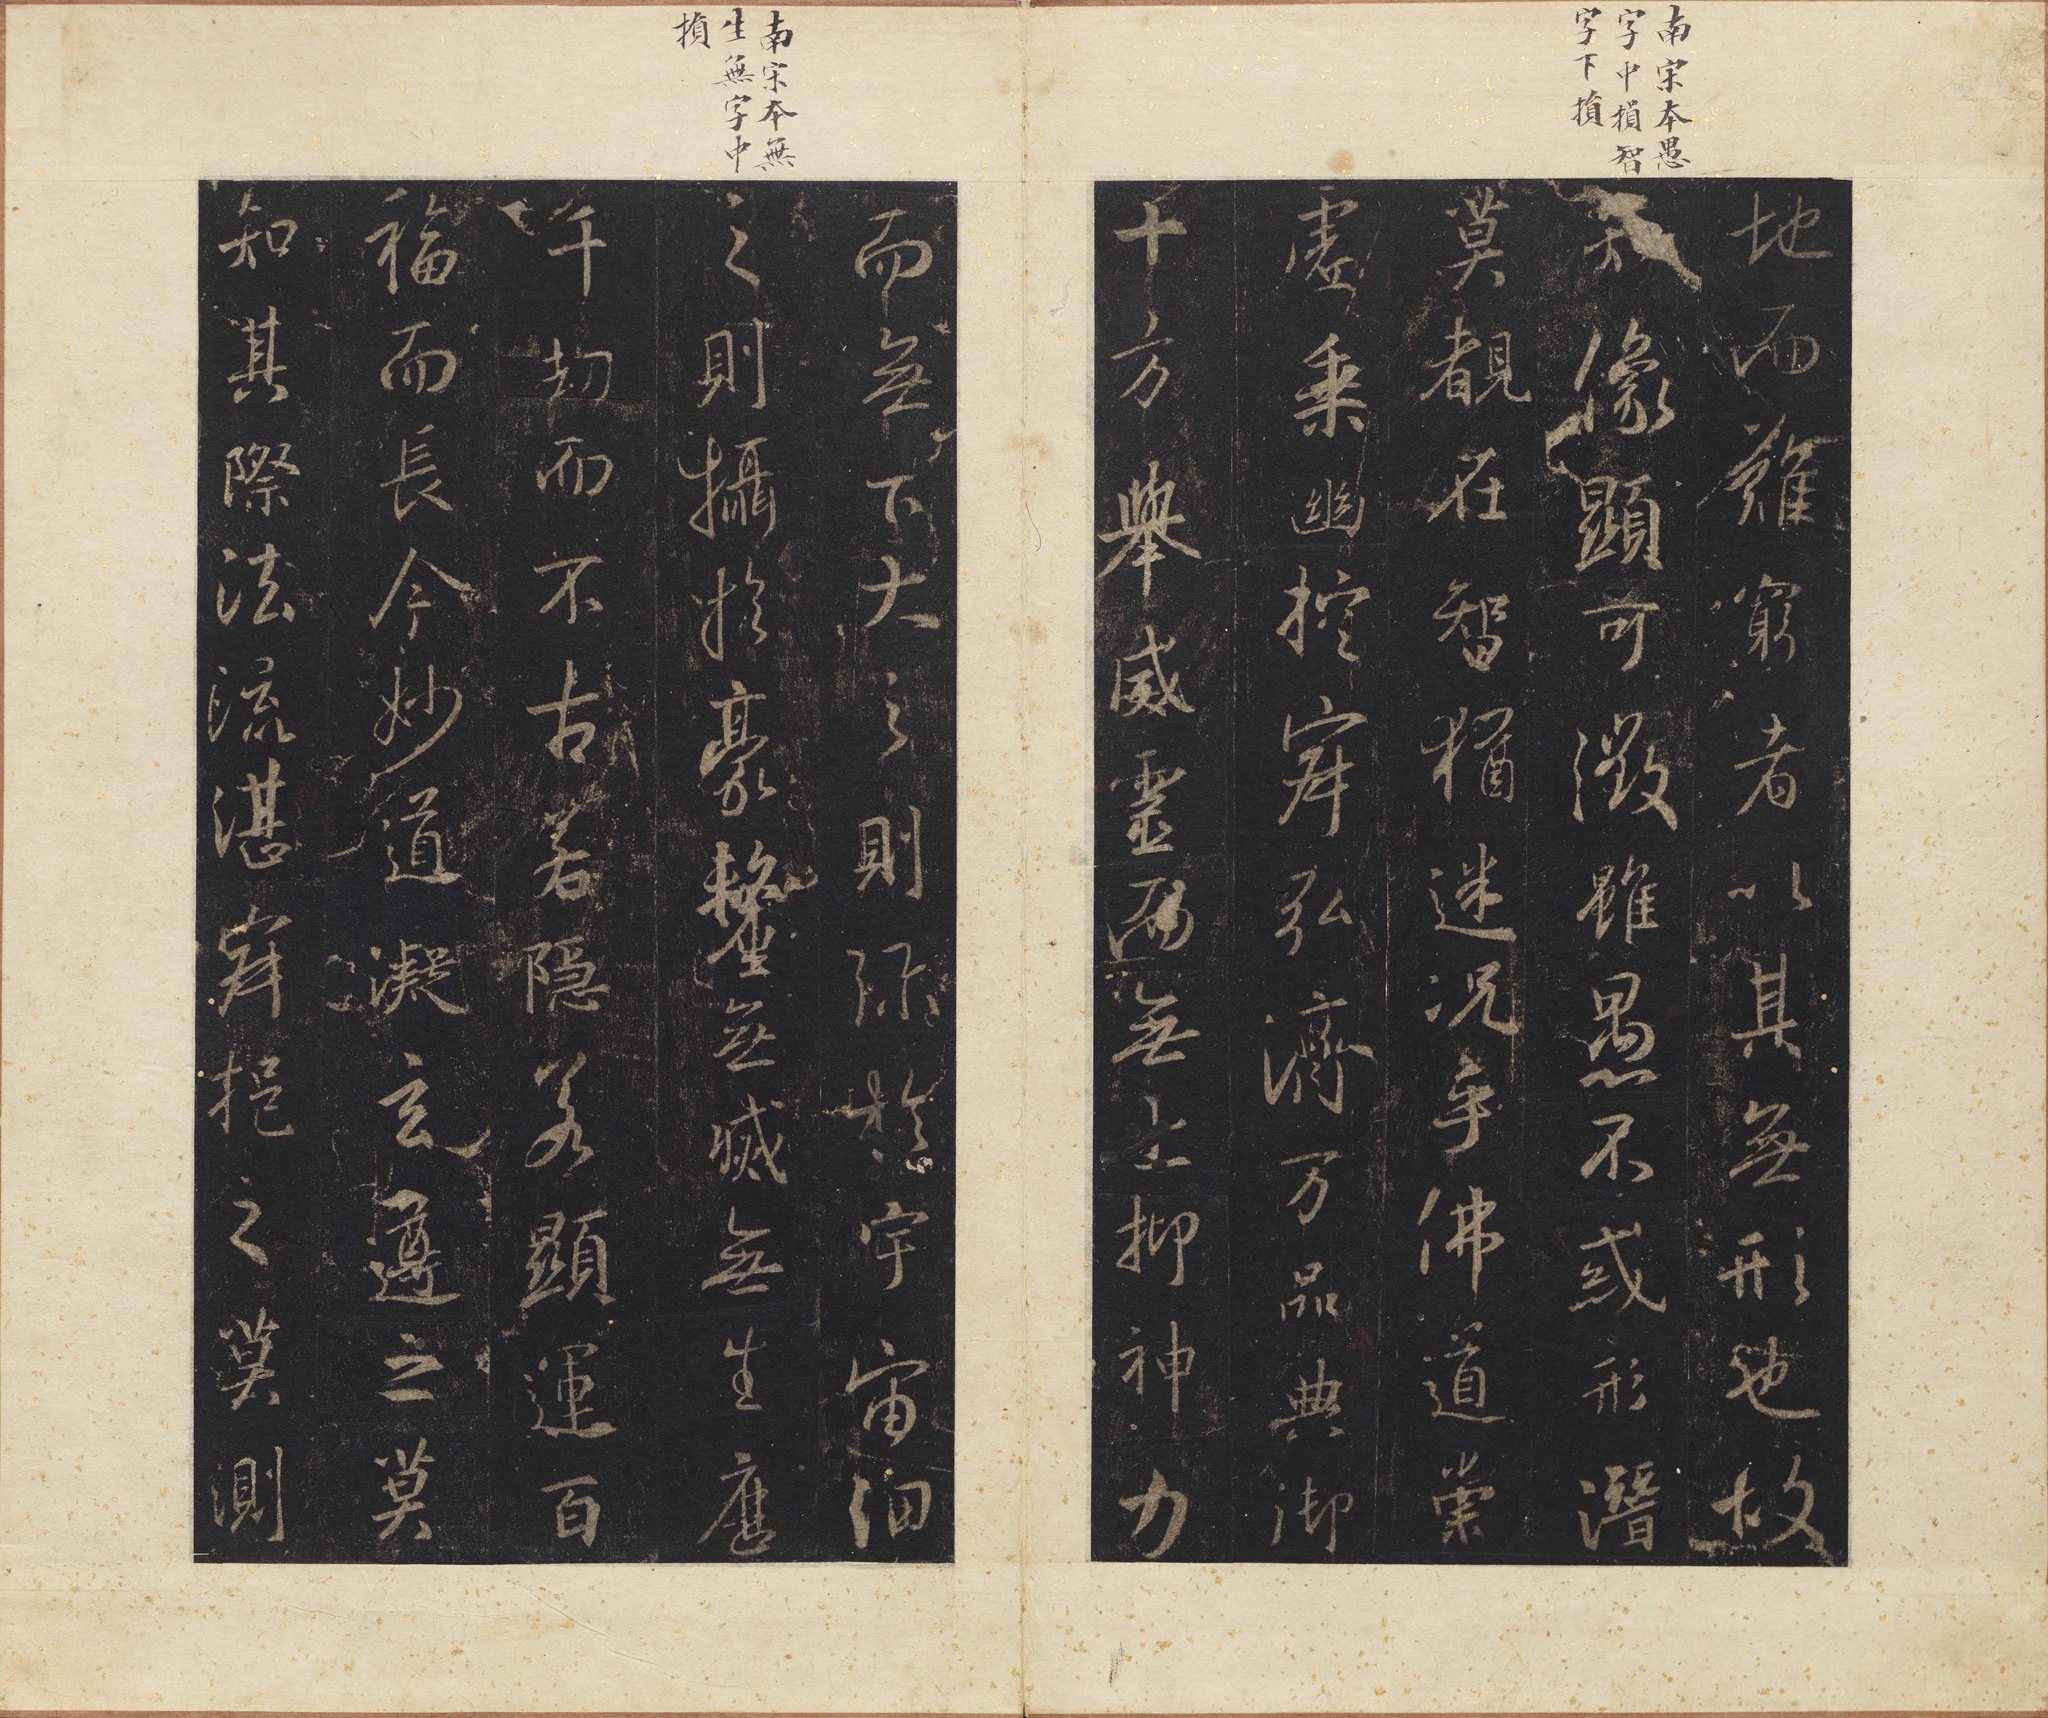 南宋本愚
字中損智
字下損
地而難窮者以其無形也故
知像顯可徵雖愚不惑形潛
莫覩在智猶迷況乎佛道崇
虛乗幽控寂弘濟万品典御
十方舉威靈而無上抑神力
南宋本無
生無字中
損
而無下大之則弥於宇宙細
之則攝於豪氂無滅無生歷
千劫而不古若隱若顯運百
福而長今妙道凝玄遵之莫
知其際法流湛寂挹之莫測